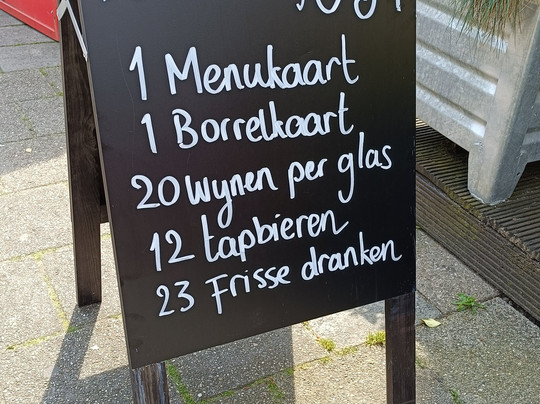 1 Menukaart
1 Borrelkaart
20 Wynen per glas
12 tapbieren
23 Frisse dranken